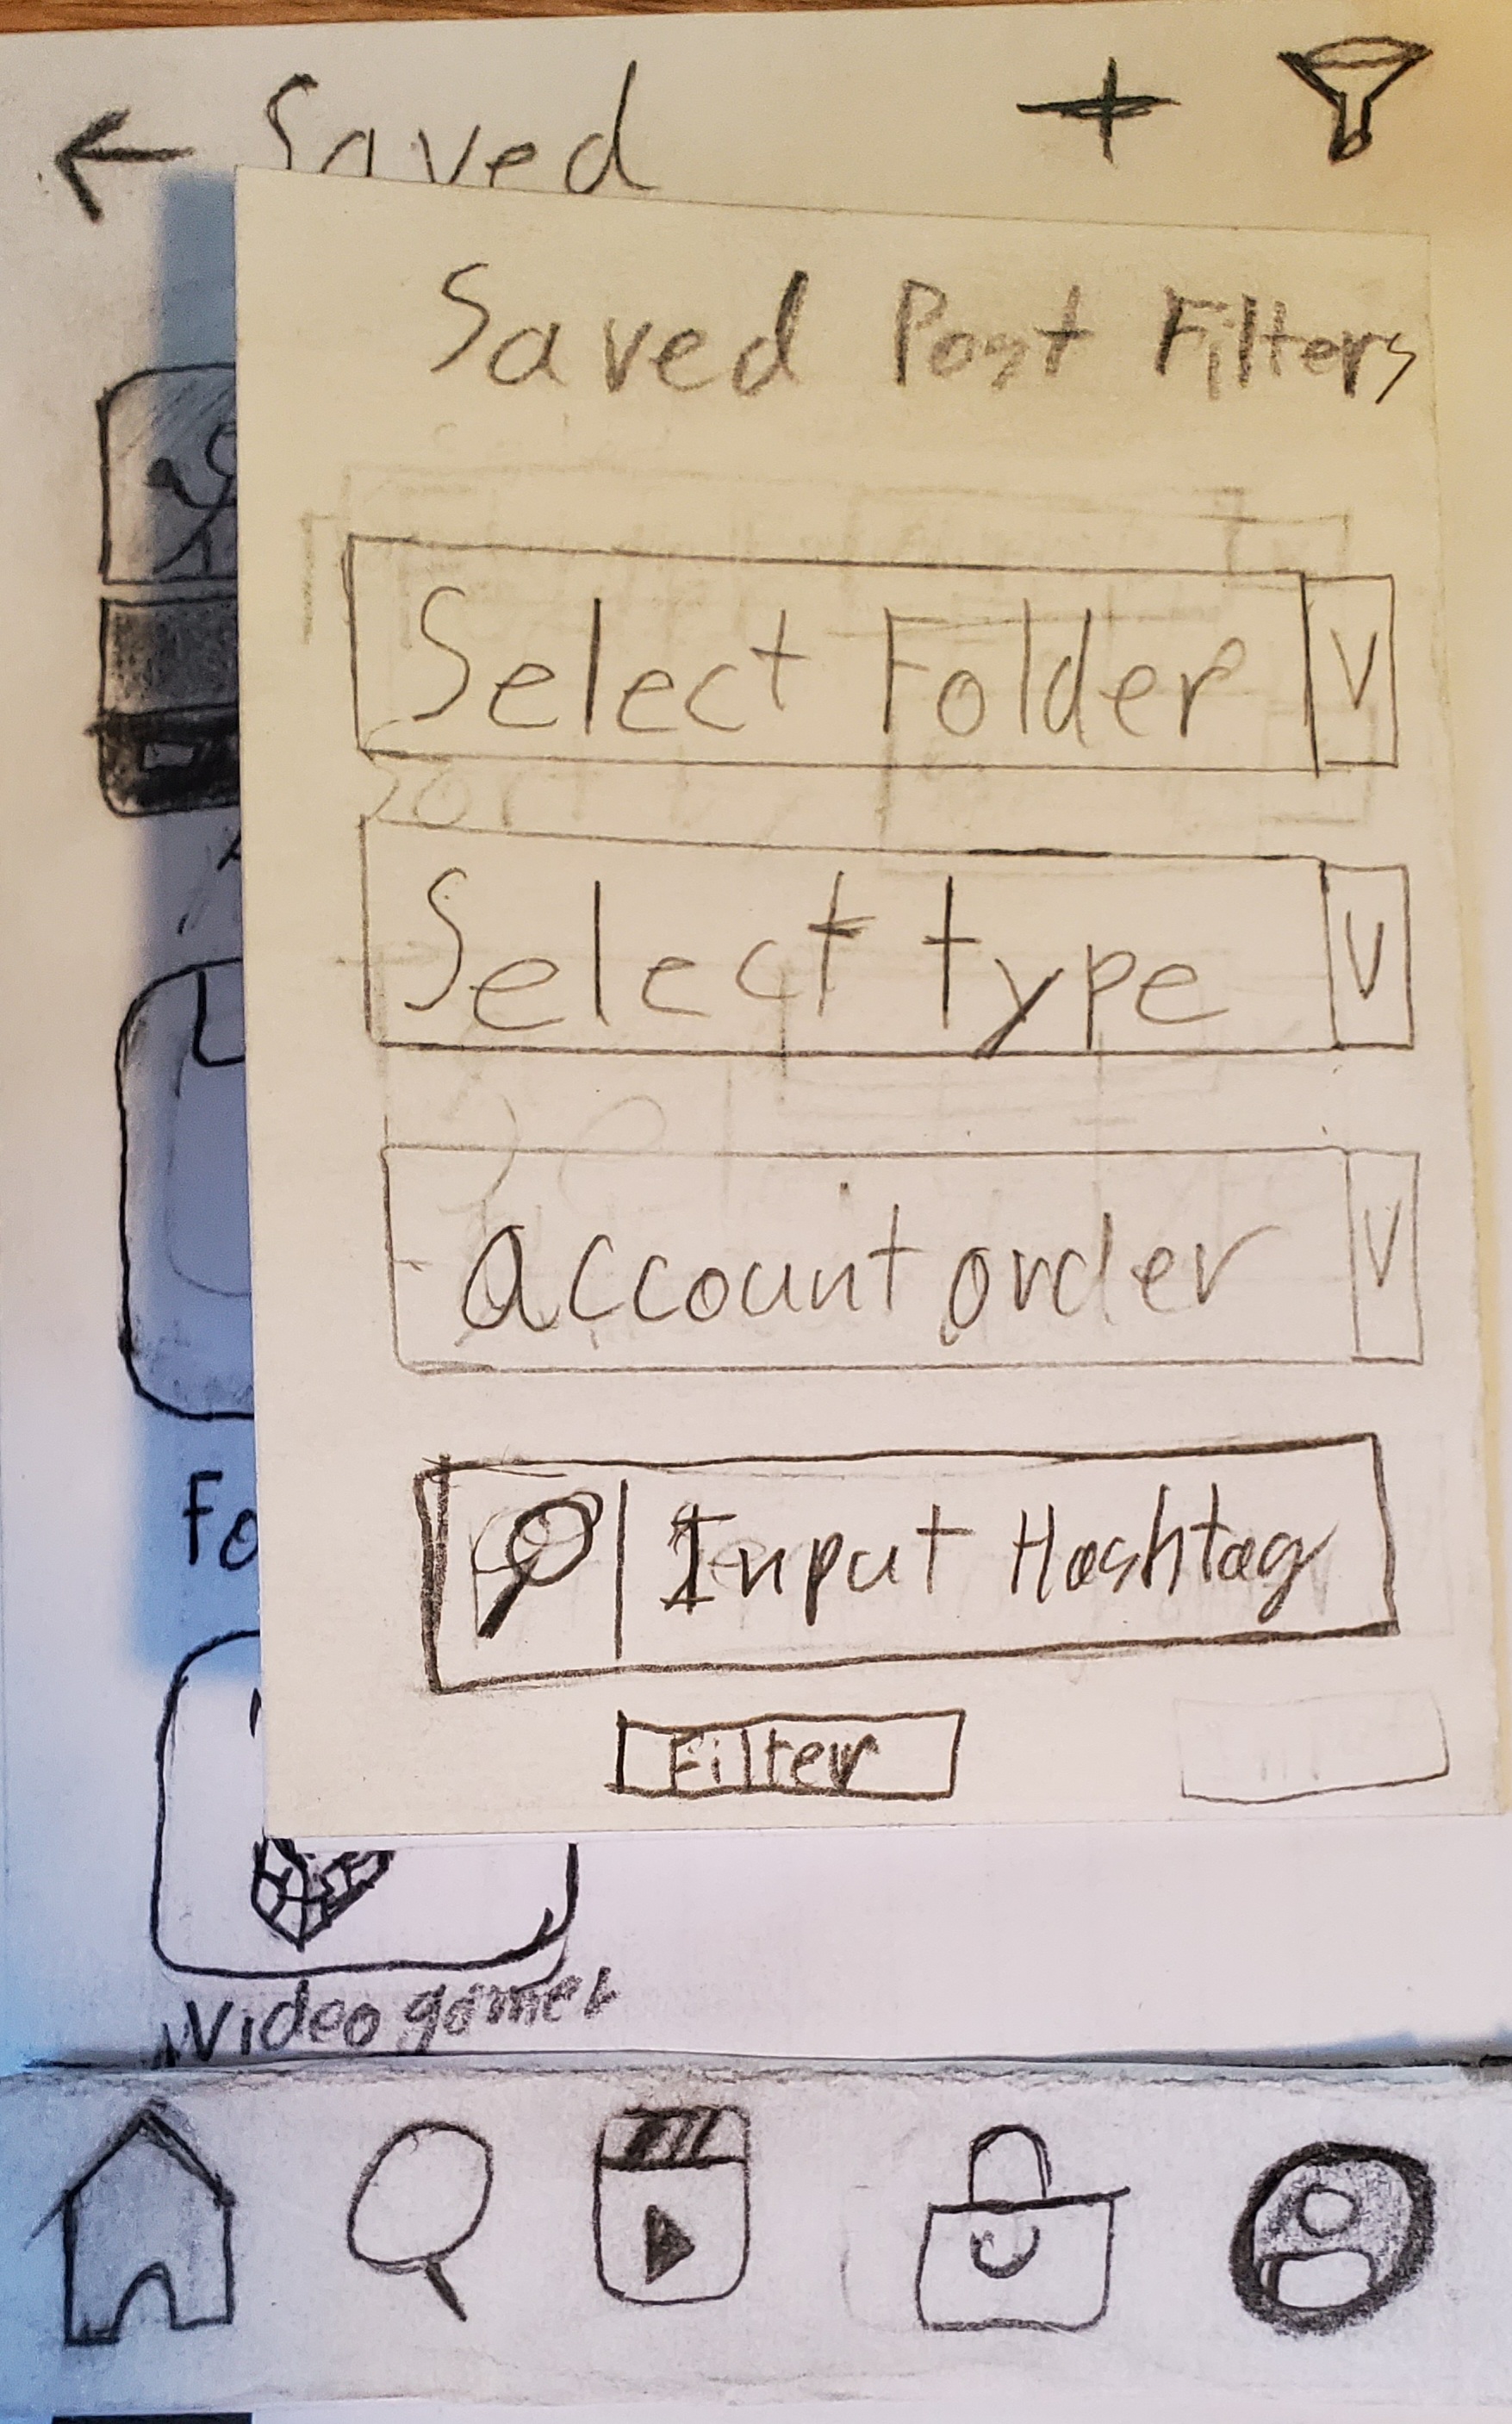 Saved
Saved Post Filters
Select Folder V
Sort by
Select type V
account order V
Input Hashtag
Fo
Filter
Video games